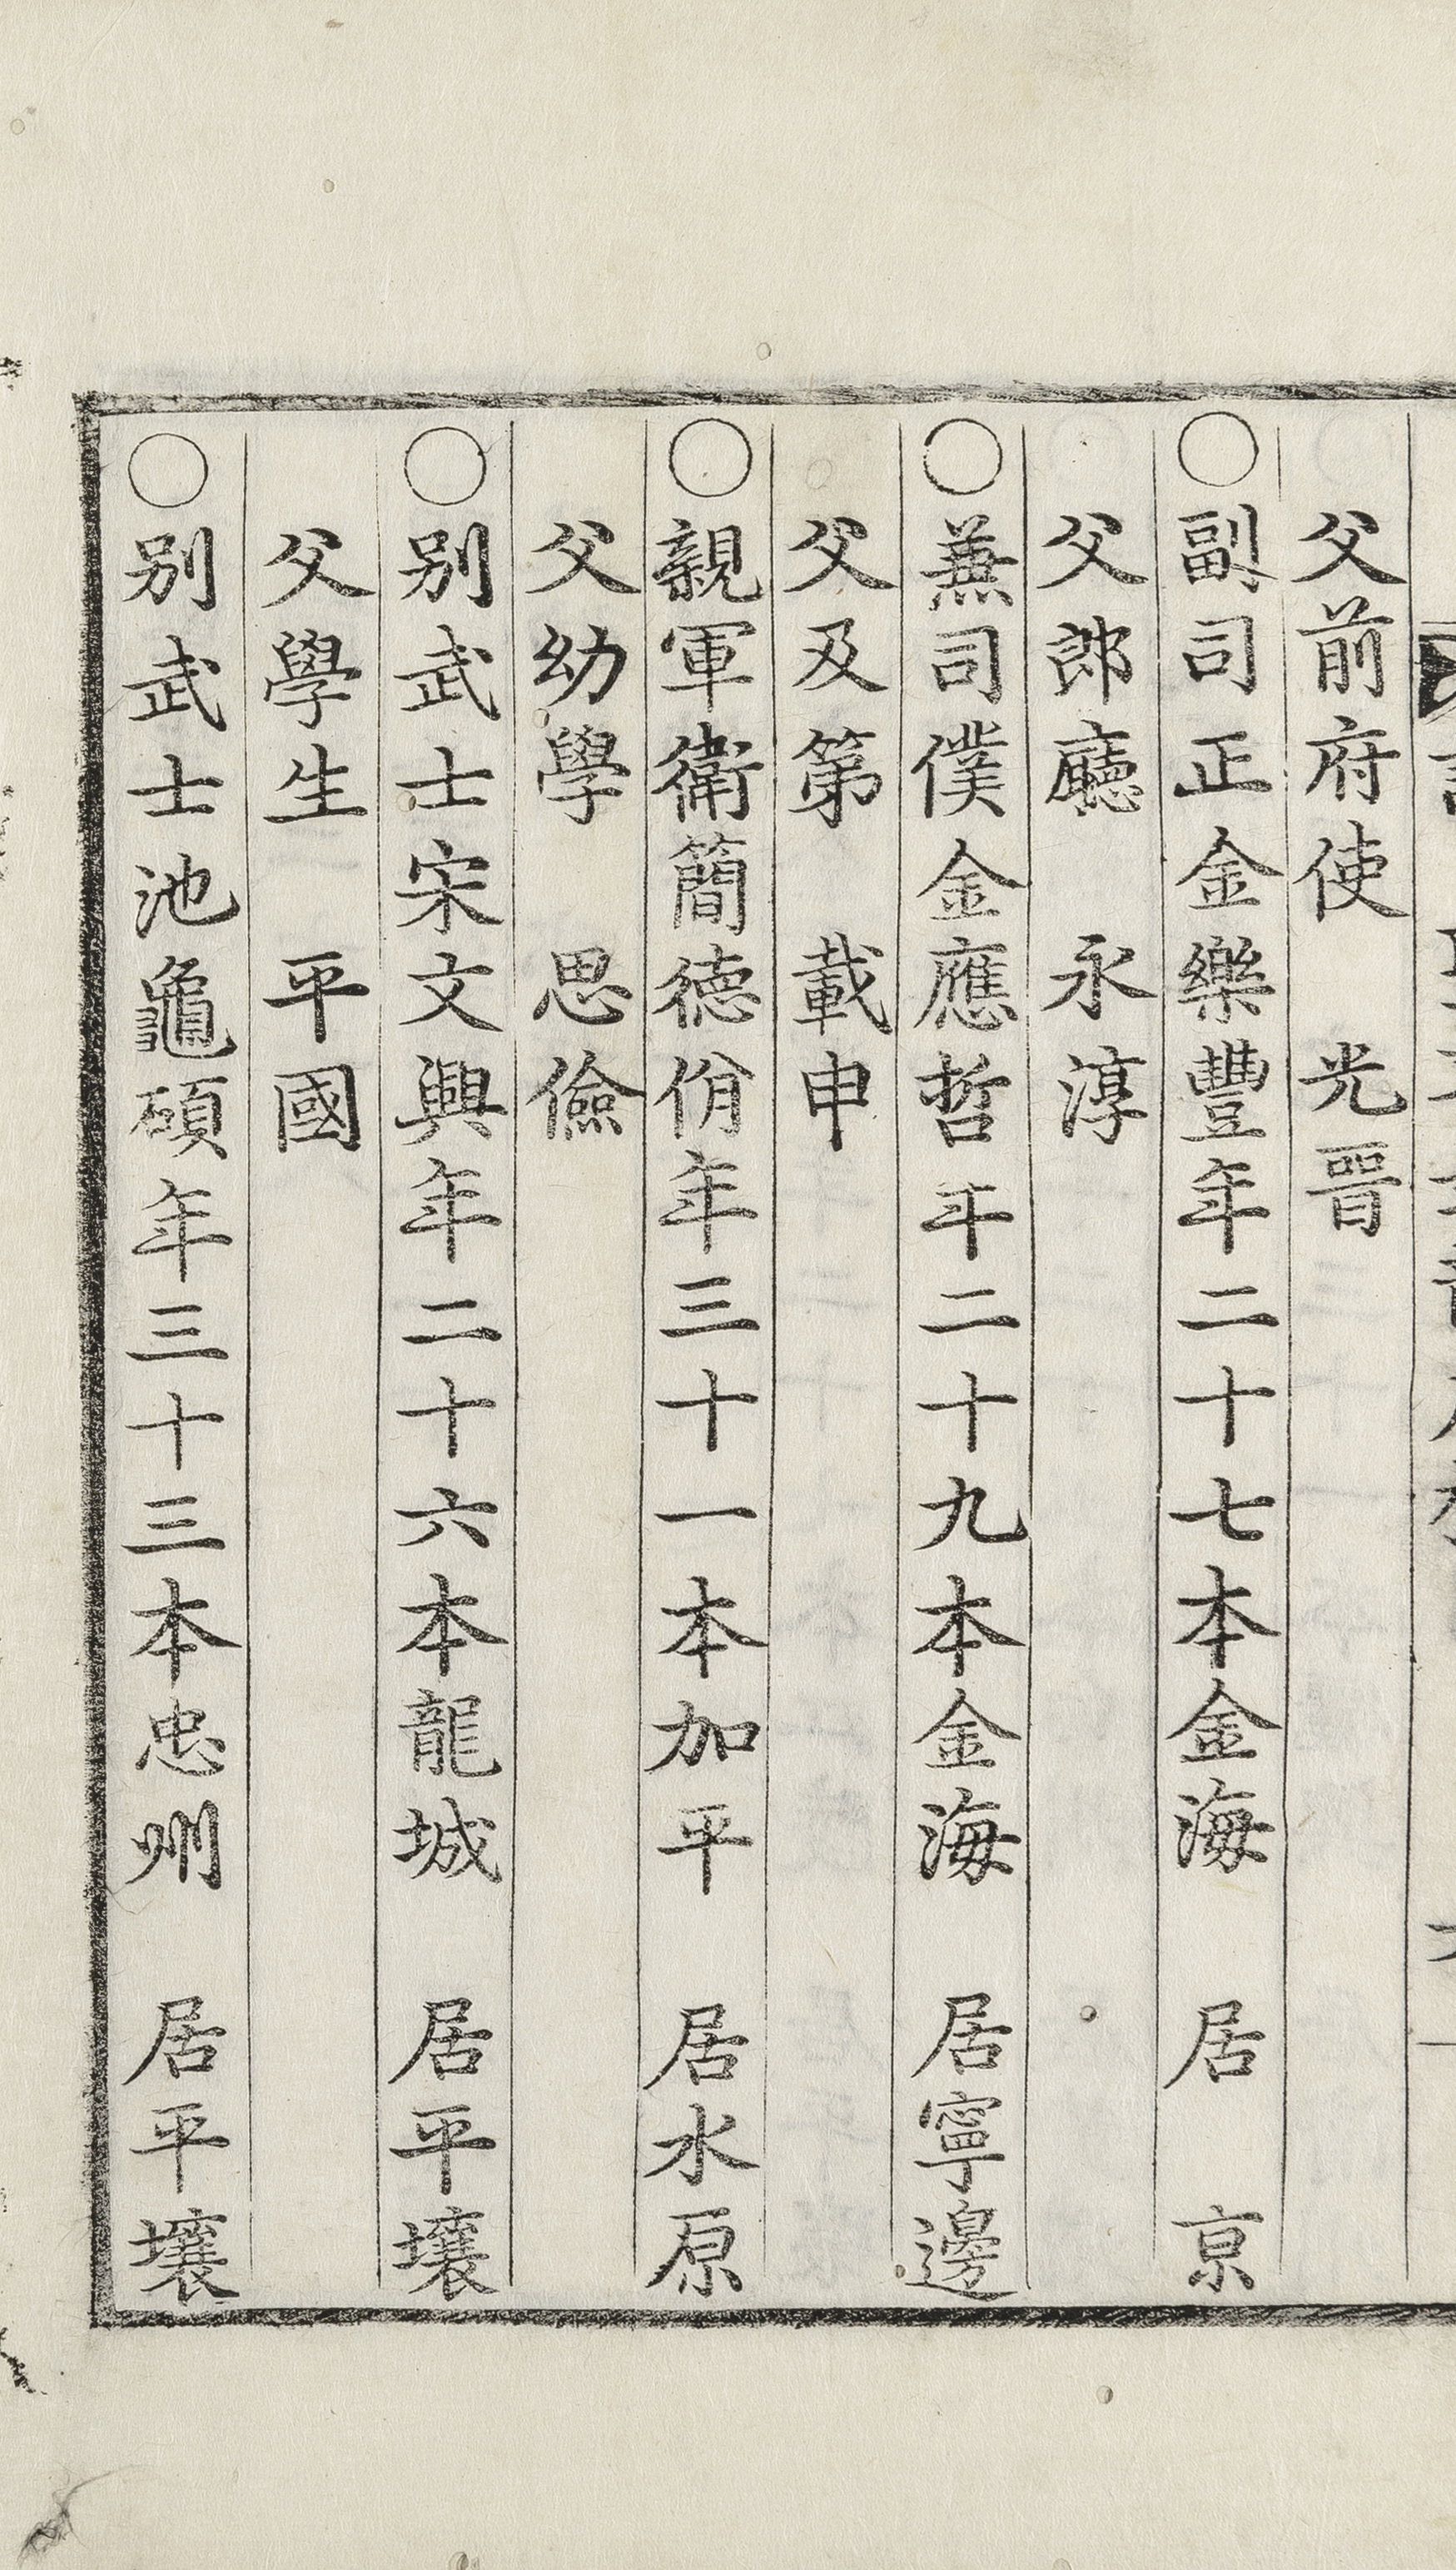 父前府使　光晉
○副司正金樂豐年二十七本金海　居　京
父郎廳　永淳
○兼司僕金應哲年二十九本金海　居寧邊
父及第　載申
○親軍衛簡德佾年三十一本加平　居水原
父幼學　思儉
○別武士宋文興年二十六本龍城　居平壤
父學生　平國
○別武士池龜碩年三十三本忠州　居平壤